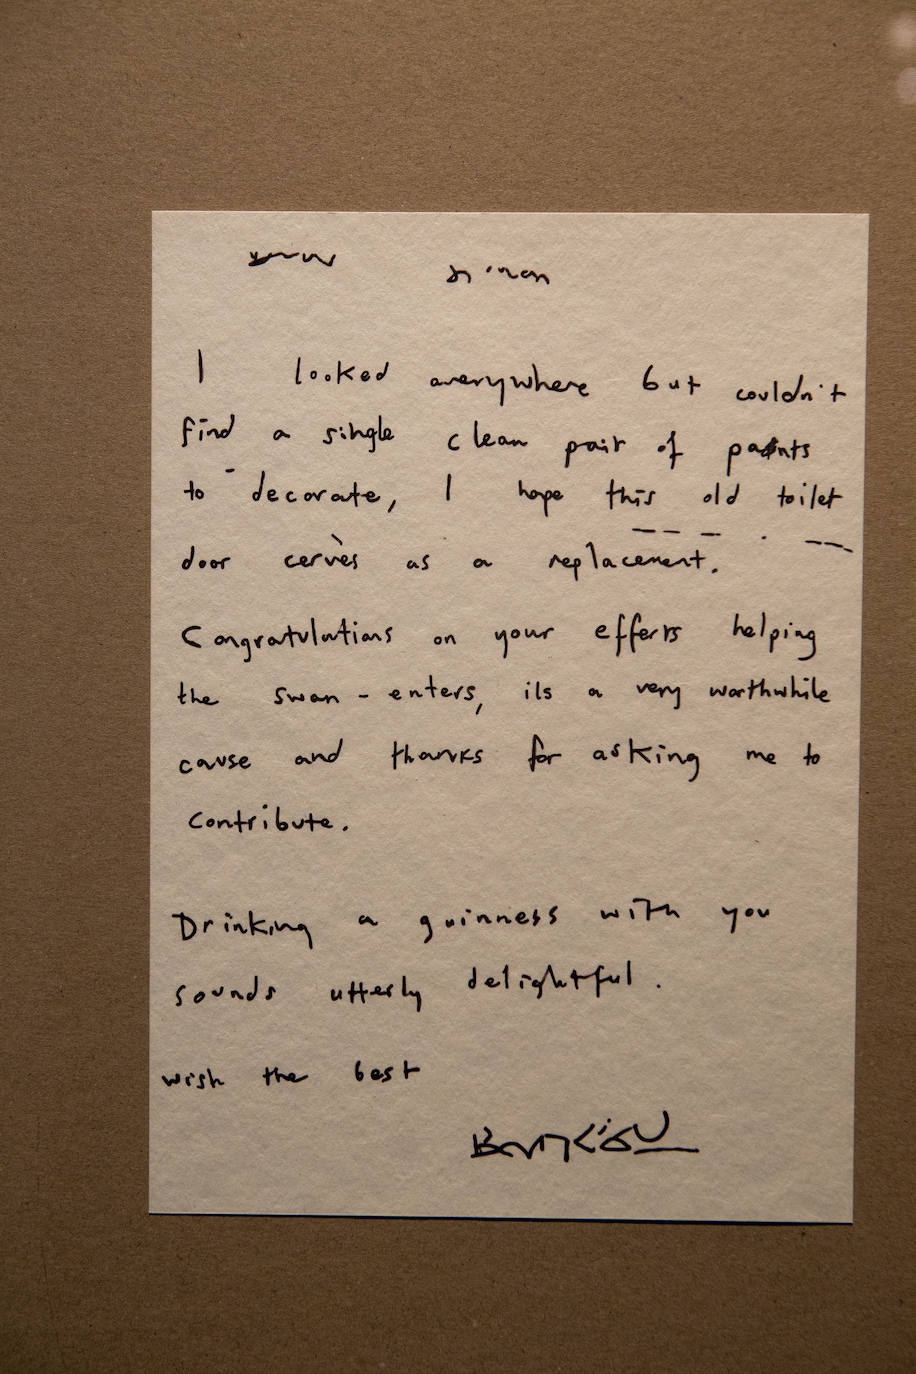 I looked averywhere but couldn't
find a single clean pair of paants
to decorate, I hope this old toilet
door cervès as a replacement.
Congratulations on your efferts helping
the swan-enters, ils a very worthwhile
cause and thanks for asking me to
contribute.
Drinking a guinness with you
sounds utterly delightful.
wish the best